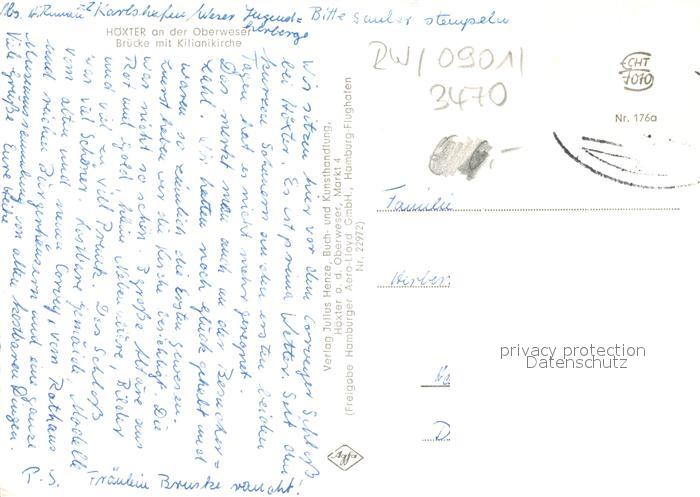 Karlshafen/Weser Jugend=
herberge
Bitte sauber stempeln
HÖXTER an der Oberweser
Brücke mit Kilianikirche
Wir sitzen hier vor dem Corveyer Schloß
bei Höxter. Es ist prima Wetter. Seit den
kurzen Schauern an den ersten beiden
Tagen hat es nicht mehr geregnet.
Das merkt man auch an der Besucher=
zahl. Wir hatten noch Glück gehabt und
waren so ziemlich die Ersten gewesen.
Zuerst haben wir die Kirche besichtigt. Die
war nicht so schön. 3 große Altäre aus
Rot und Gold, kleine Nebenaltäre, Bilder
und viel zu viel Prunk. Das Schloß
war viel schöner. Kostbare Gemälde, Modelle
vom alten und neuen Corvey, vom Rathaus
und reichen Bürgerhäusern und eine ganze
Museumssammlung von alten kostbaren Dingen.
Viele Grüße Eure
P. S. Fräulein Bruske raucht!
Verlag Julius Henze, Buch- und Kunsthandlung,
Höxter a. d. Oberweser, Markt 4
(Freigabe Hamburger Aero-Lloyd GmbH., Hamburg-Flughafen
Nr. 22972)
Agfa
RW/09011
3470
ECHT
FOTO
Nr. 176a
Familie
privacy protection
Datenschutz